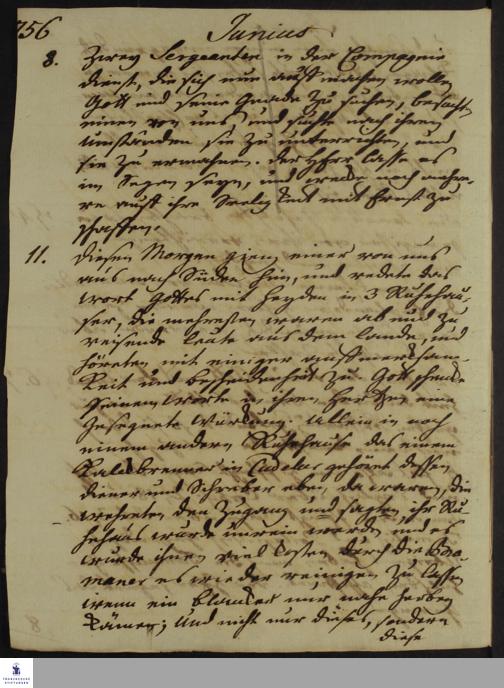 756
Junius
8. Zwey Sergeanten in der Compagnie
dienst, die sich nun auff machen wollen
Gott und seine Gnade zu suchen, besuchte
einen von uns und suchte nach ihren
Umständen sie zu unterrichten, und
sie zu ermahnen. Der HErr lasse es
im Segen seyn, und wecke noch mehre-
re auff ihre Seeligkeit mit Ernst zu
schaffen.
11. Diesen Morgen gieng einer von uns
aus nach Süden hin, und redete das
Wort Gottes mit Heyden in 3 Ruhehäu-
ser, die mehresten waren ab und zu
reisende Leute aus dem Lande, und
höreten mit einiger auffmercksam-
keit und bescheidenheit zu. Gott schencke
seinem Worte in ihren Hertzen eine
gesegnete Würckung. Allein in noch
einem andern Ruhehause das einem
Kalckbrenner in Cudelur gehöret dessen
diener und Schreiber eben da waren, die
wehreten den Zugang und sagten, ihr Ru-
hehaus wurde unrein werden und es
wurde ihnen viel kosten durch die Bra-
maner es wieder reinigen zu lassen
wenn ein blancker nur nahe herbey
käme; und nicht nur dieses, sondern
diese
FRANCKESCHE
STIFTUNGEN